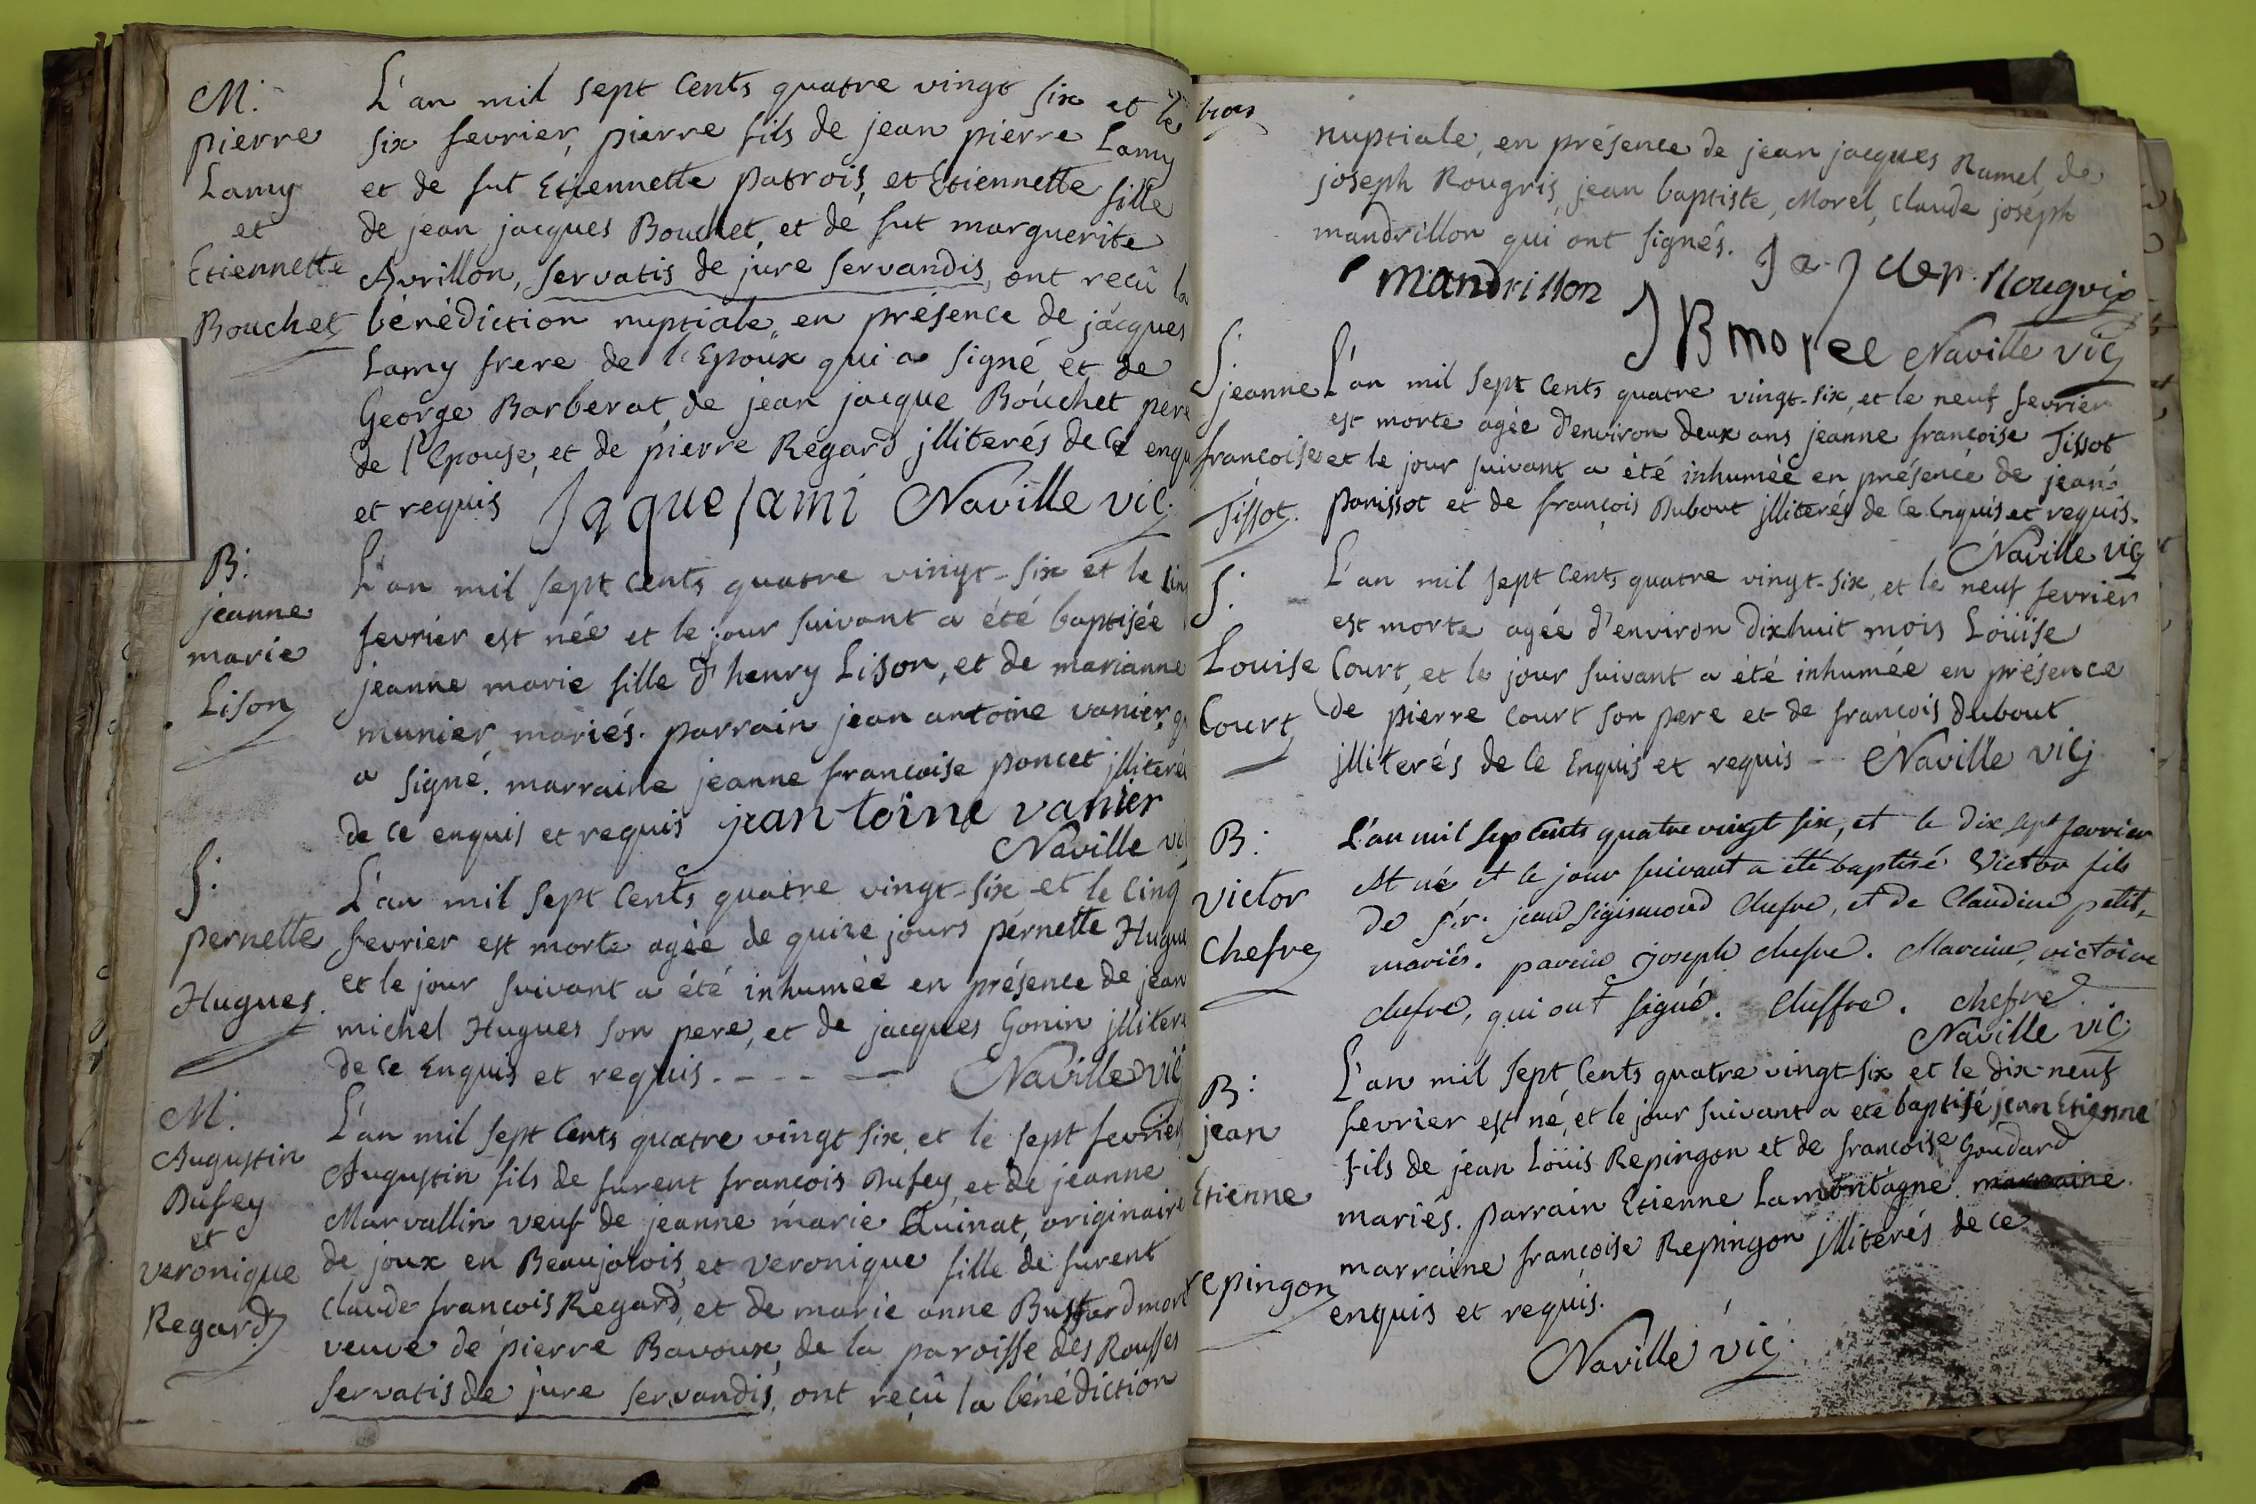 M:
pierre
Lamy
et
Etiennette
Bouchet
L'an mil sept cents quatre vingt six et le
six fevrier, pierre fils de jean pierre Lamy
et de fut Etiennette patrois, et Etiennette fille
de jean jacques Bouchet, et de fut marguerite
Avrillon, servatis de jure servandis, ont reçû la
bénédiction nuptiale, en présence de jacques
Lamy frere de l'Epoux qui a signé et de
George Barberat, de jean jacque Bouchet pere
de l'Epouse, et de pierre Regard jlliterés de ce enqu
et requis Jaque lami Naville vic:
B:
jeanne
marie
Lison
L'an mil sept cents quatre vingt-six et le cin
fevrier est née et le jour suivant a été baptisée
jeanne marie fille d'henry Lison, et de marianne
munier, mariés. parrain jean antoine vanier, q
a signé. marraine jeanne francoise poncet jlliteré
de ce enquis et requis jean toine vanier
Naville vi
S:
pernette
Hugues.
L'an mil sept cents quatre vingt-six et le cinq
fevrier est morte agée de quinze jours pernette Hugue
et le jour suivant a été inhumée en présence de jean
michel Hugues son pere, et de jacques Gonin jlliter
de ce Enquis et requis. - - - — Naville vic
M:
Augustin
Dufey
et
veronique
Regard
L'an mil sept cents quatre vingt six et le sept fevrier
Augustin fils de furent francois Dufey, et de jeanne
Marvallin veuf de jeanne marie Quinat, originaire
de joux en Beaujolois, et veronique fille de furent
claude francois Regard, et de marie anne Buffard mort
veuve de pierre Bavoux, de la paroisse des Rousses
servatis de jure servandis, ont reçû la bénédiction
nuptiale, en présence de jean jacques Ramel, de
joseph Rougris, jean baptiste, Morel, claude joseph
mandrillon qui ont signés.
mandrillon
J B morel Naville vic
S:
jeanne
francoise
Tissot.
L'an mil sept cents quatre vingt-six, et le neuf fevrier
est morte agée d'environ deux ans jeanne francoise Tissot
et le jour suivant a été inhumée en présence de jean
panissot et de françois Dubout jlliterés de ce enquis et requis.
Naville vic
S:
Louise
Court
L'an mil sept cents quatre vingt-six, et le neuf fevrier
est morte agée d'environ dixhuit mois Loüise
Court, et le jour suivant a été inhumée en présence
de pierre court son pere et de francois dubout
jlliterés de ce Enquis et requis -- Naville vic
B:
victor
Chefre
L'an mil sep cents quatre vingt six, et le dix sept fevrier
est né et le jour suivant a été baptisé Victor fils
de sr. jean sigismond Chefre, et de Claudine petit,
mariés. parain joseph chefre. Maraine, victoire
chefre, qui ont signé. Cheffre. chefre
Naville vic:
B:
jean
Etienne
repingon
L'an mil sept cents quatre vingt-six et le dix-neuf
fevrier est né, et le jour suivant a eté baptisé jean Etienne
fils de jean Loüis Repingon et de francoise Goudard
mariés. parrain Etienne Lamontagne. marraine
marraine françoise Repingon jlliterés de ce
enquis et requis.
Naville vic: